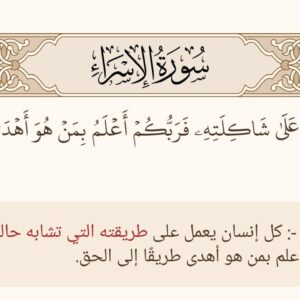 سُورَةُ الإِسْرَاءِ
عَلَىٰ شَاكِلَتِهِۦ فَرَبُّكُمْ أَعْلَمُ بِمَنْ هُوَ أَهْدَ
-: كل إنسان يعمل على طريقته التي تشابه حاله
علم بمن هو أهدى طريقًا إلى الحق.